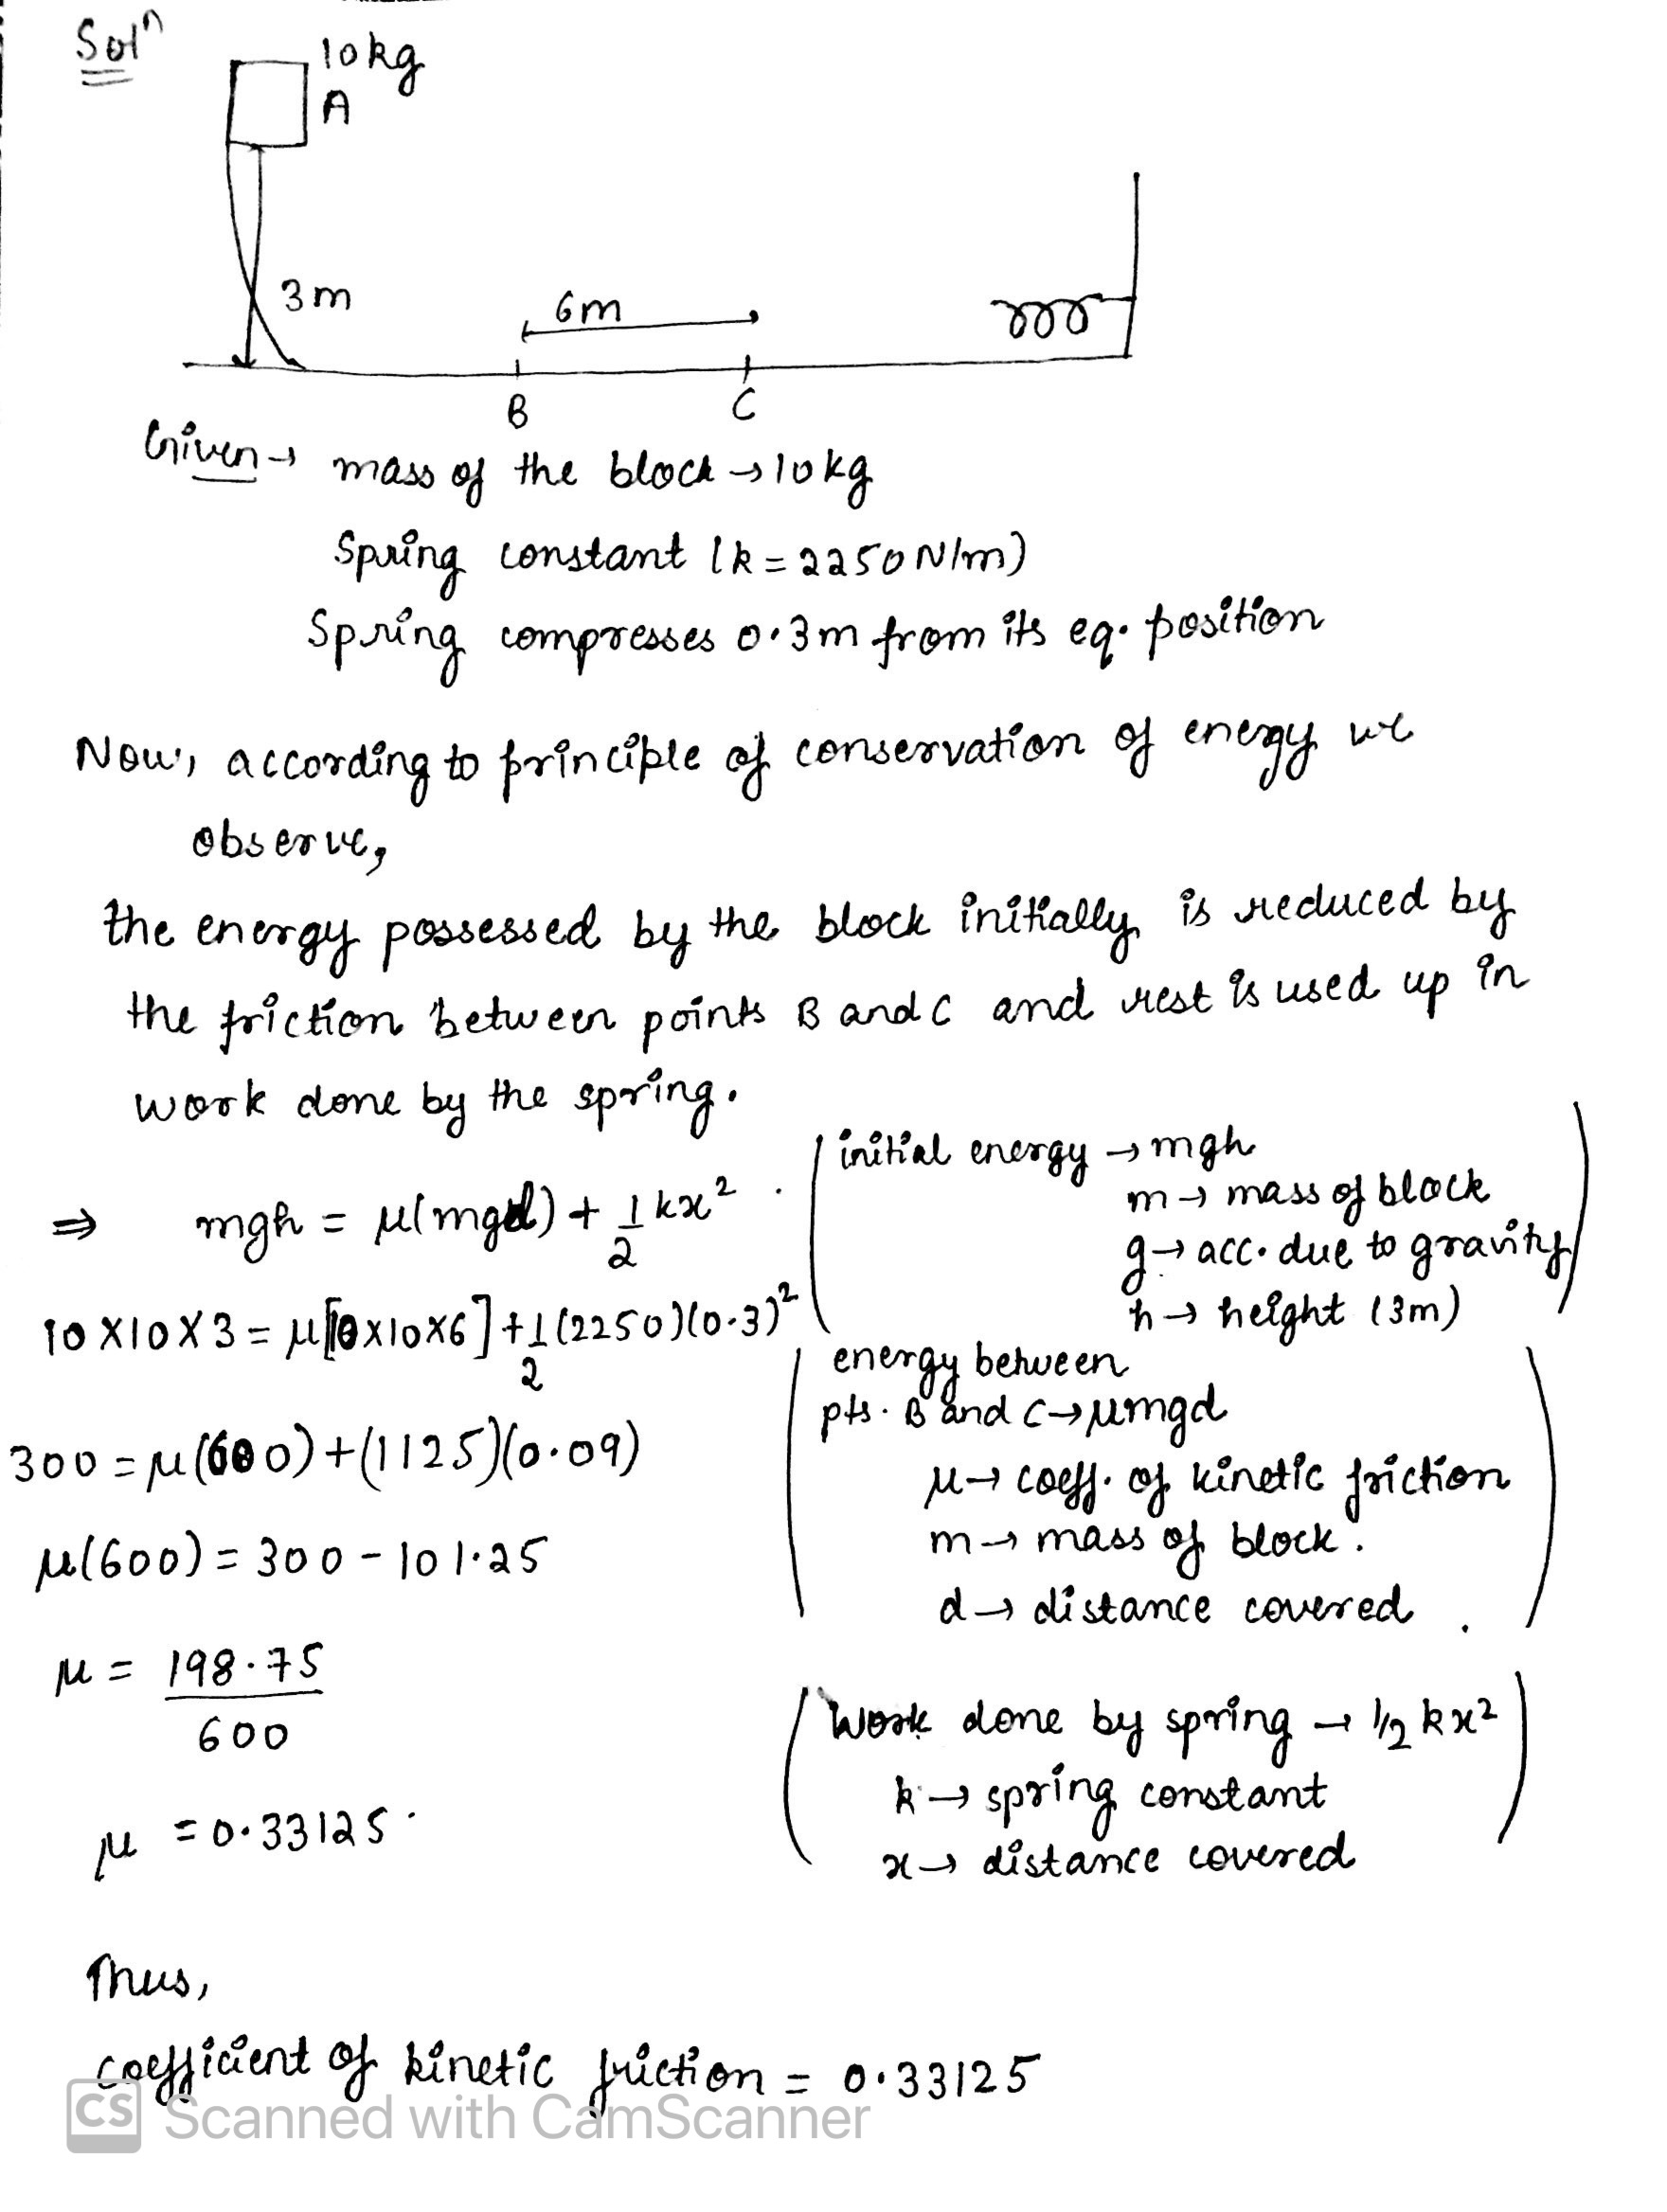 Solⁿ
10kg
A
3m
6m
B
C
Given→ mass of the block → 10kg
Spring constant (k = 2250 N/m)
Spring compresses 0.3m from its eq. position
Now, according to principle of conservation of energy we
observe,
the energy possessed by the block initially is reduced by
the friction between points B and C and rest is used up in
work done by the spring.
⇒ mgh = μ(mgd) + 1/2 kx²
10 X10 X 3 = μ[10x10x6] + 1/2 (2250)(0.3)²
300 = μ(600) + (1125)(0.09)
μ(600) = 300 - 101.25
μ = 198.75/600
μ = 0.33125
(initial energy → mgh
m → mass of block
g → acc. due to gravity
h → height (3m))
(energy between
pts. B and C → μmgd
μ → coeff. of kinetic friction
m → mass of block.
d → distance covered.)
(Work done by spring → 1/2 kx²
k → spring constant
x → distance covered)
Thus,
coefficient of kinetic friction = 0.33125
CS Scanned with CamScanner